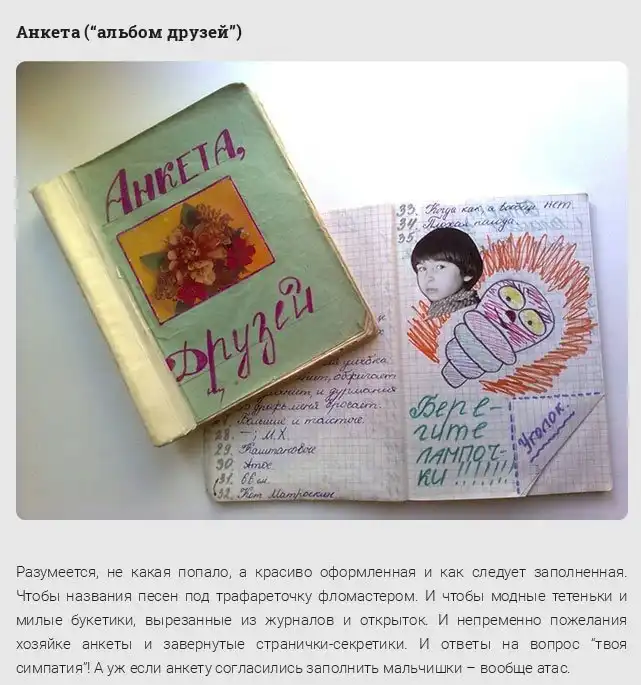 Анкета (“альбом друзей”)
АНКЕТА,
Друзей
33. Когда как, а вообще нет.
34. Плохая погода.
35.
28. — ; М.Х.
29. Каштановое
30.
31. 66 см.
32. Кот Матроскин
Бере-
гите
лампоч-
ки !!!!!!!
Уголок.
Разумеется, не какая попало, а красиво оформленная и как следует заполненная.
Чтобы названия песен под трафареточку фломастером. И чтобы модные тетеньки и
милые букетики, вырезанные из журналов и открыток. И непременно пожелания
хозяйке анкеты и завернутые странички-секретики. И ответы на вопрос “твоя
симпатия”! А уж если анкету согласились заполнить мальчишки – вообще атас.